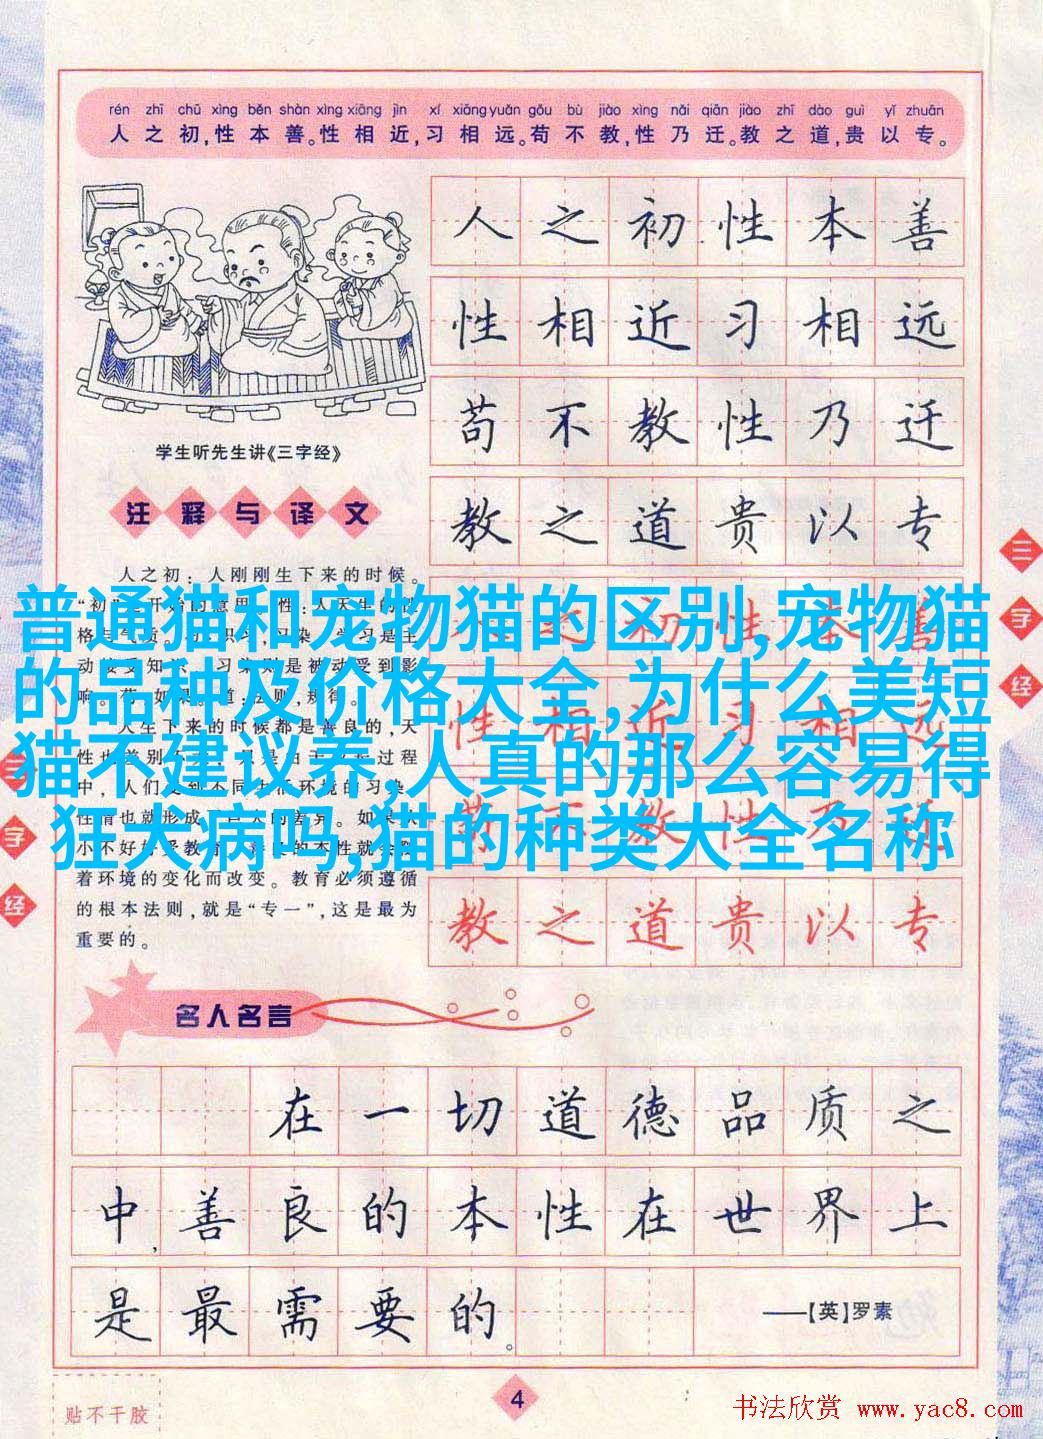 rén zhī chū xìng běn shàn xìng xiāng jìn xí xiāng yuǎn gǒu bù jiào xìng nǎi qiān jiào zhī dào guì yǐ zhuān
人之初,性本善。性相近,习相远。苟不教,性乃迁。教之道,贵以专。
人之初性本善
性相近习相远
苟不教性乃迁
教之道贵以专
学生听先生讲《三字经》
注释与译文
人之初:人刚刚生下来的时候。
普通猫和宠物猫的区别,宠物猫
的品种及价格大全,为什么美短
猫不建议养,人真的那么容易得
狂犬病吗,猫的种类大全名称
人生下来的时候都是善良的,天
着环境的变化而改变。教育必须遵循
的根本法则,就是“专一”,这是最为
重要的。
教之道贵以专
三字经
字经
名人名言
在一切道德品质之
中,善良的本性在世界上
是最需要的。
——【英】罗素
4
贴不干胶
书法欣赏 www.yac8.com